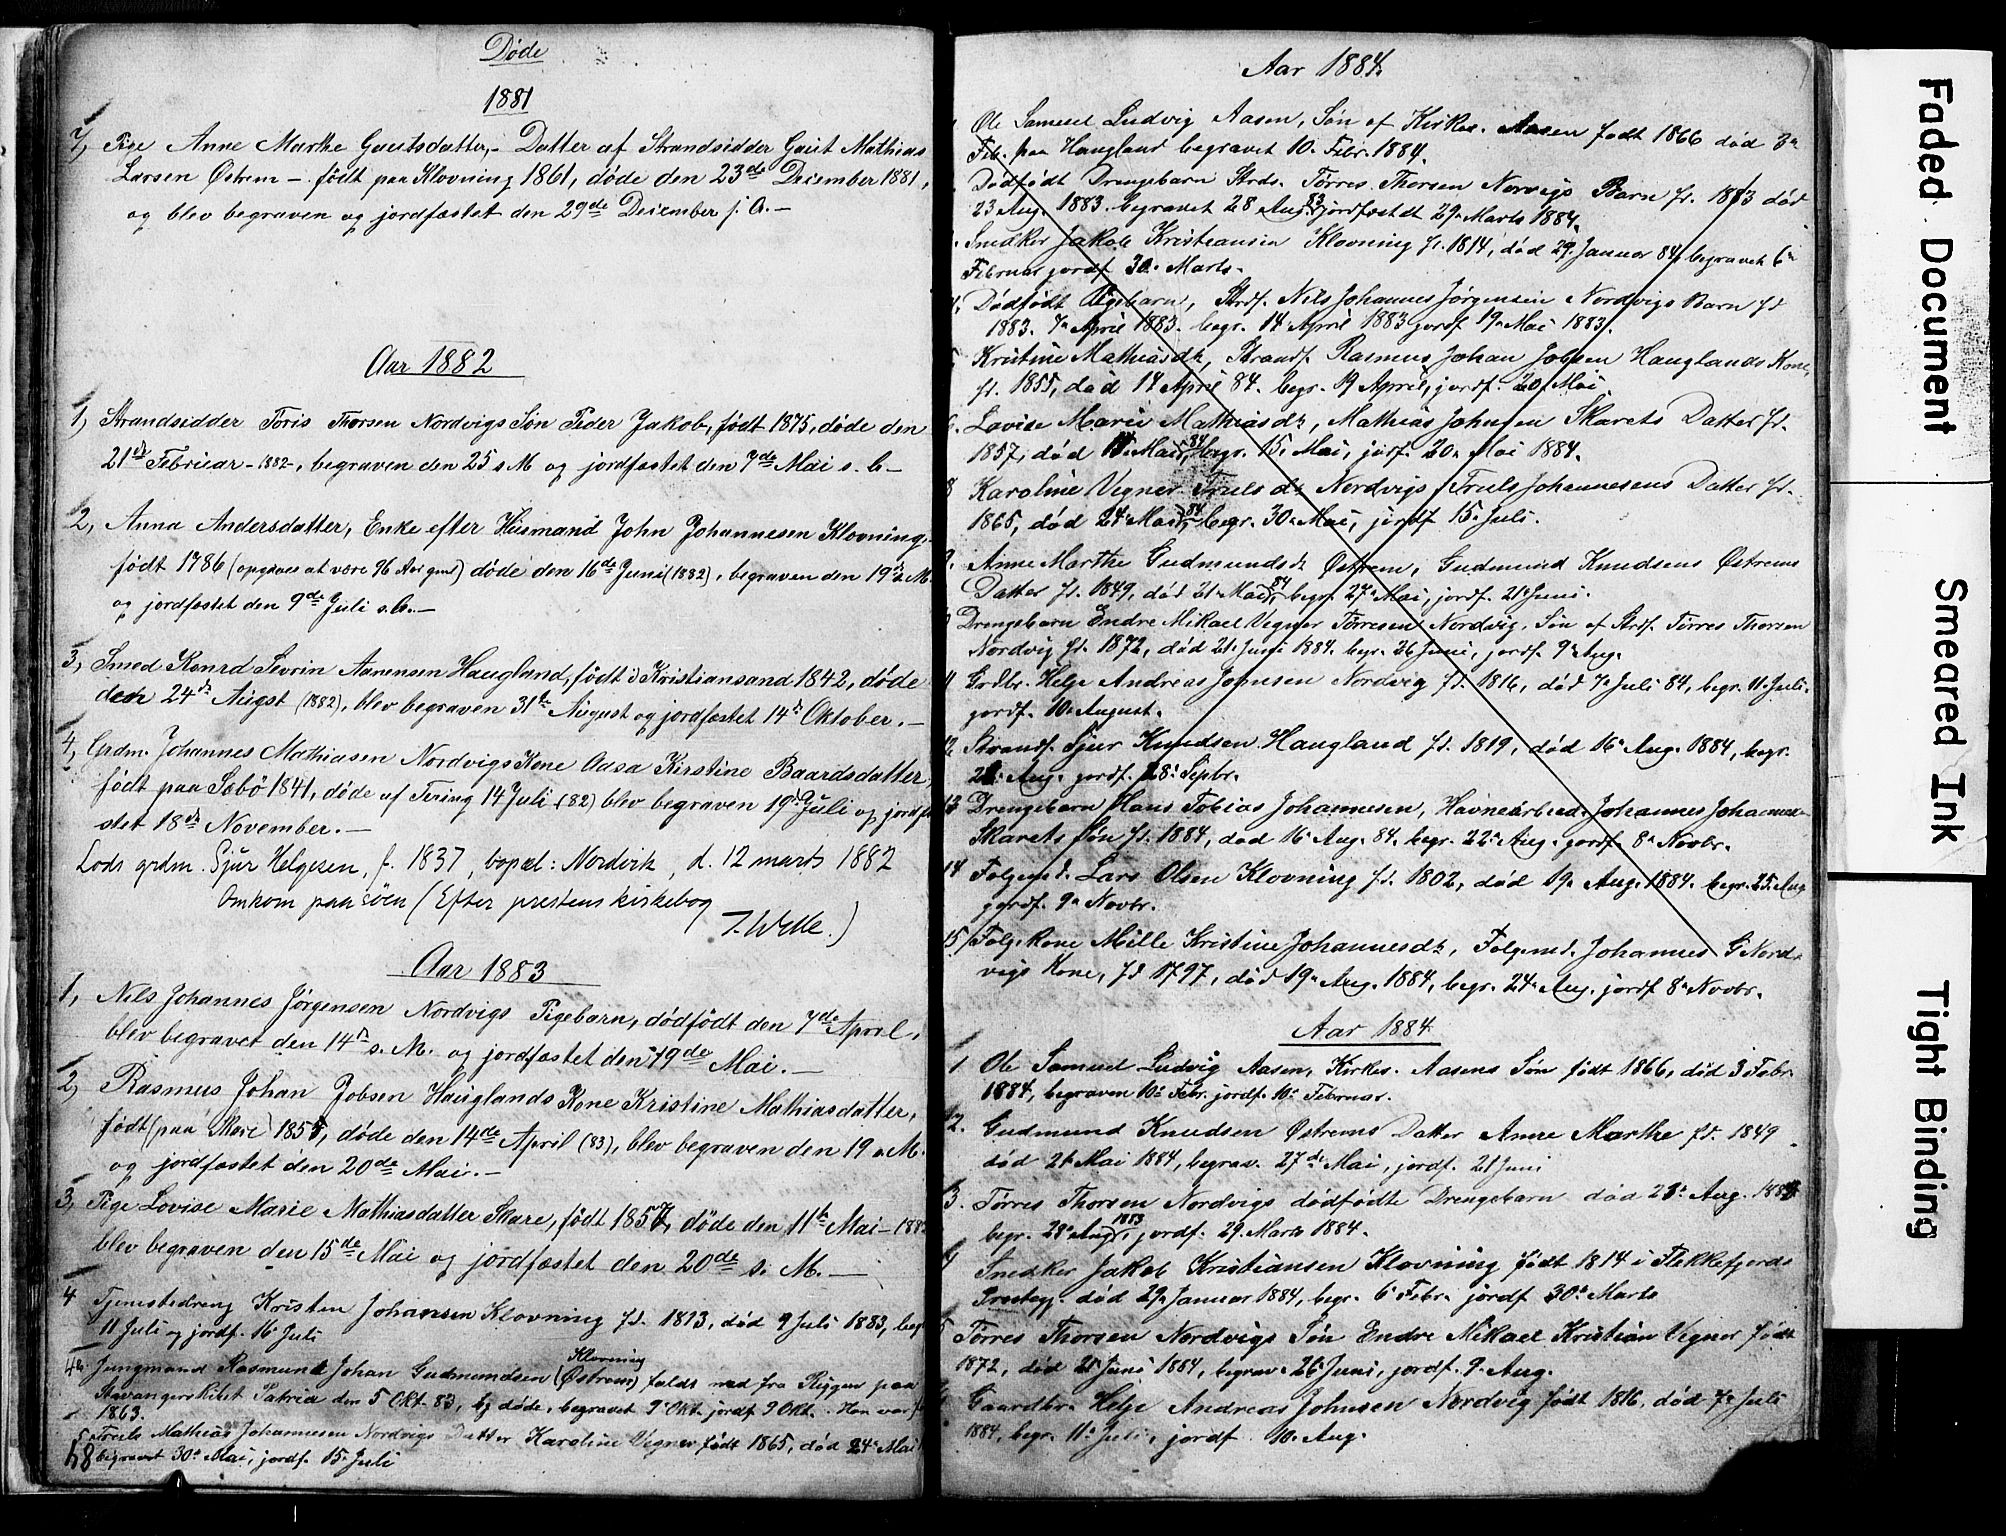 Døde
1881
7, Pige Anne Marthe Gautsdatter, - Datter af Strandsidder Gaut Mathias
Larsen Østrem - født paa Klovning 1861, døde den 23de December 1881,
og blev begraven og jordfæstet den 29de December s. A. -
Aar 1882
1, Strandsidder Töris Thorsen Nordvigs Søn Peder Jakob, født 1875, døde den
21de Februar - 1882 -, begraven den 25 s M og jordfæstet den 7de Mai s. A. -
2, Anna Andersdatter, Enke efter Husmand John Johannesen Klovning,
født 1786 (opgives at være 96 Aar gml) døde den 16de Juni (1882), begraven den 19de s. M.
og jordfæstet den 9de Juli s. A. -
3, Smed Konrd Sevrin Aanensen Haugland, født i Kristiansand 1842, døde
den 24de August (1882), blev begraven 31te August og jordfæstet 14de Oktober. -
4, Grdm. Johannes Mathiasen Nordvigs Kone Aasa Kirstine Baardsdatter,
født paa Sæbö 1841, døde af Tæring 14 Juli (82) blev begraven 19de Juli og jordfæ
stet 18de November. -
Lods grdm. Sjur Helgesen, f. 1837, bopæl: Nordvik, d. 12 marts 1882
Omkom paa søen (Efter prestens kirkebog
T. Welle.)
Aar 1883
1, Nils Johannes Jørgensen Nordvigs Pigebarn, dödfödt den 7de April,
blev begravet den 14de s. M. og jordfæstet den 19de Mai. -
2, Rasmus Johan Jobsen Hauglands Kone Kristine Mathiasdatter,
født (paa Skare) 1855, døde den 14de April (83), blev begraven den 19 s M.
og jordfæstet den 20de Mai. -
3, Pige Lovise Marie Mathiasdatter Skare, født 1857, døde den 11te Mai - 1883
blev begraven den 15de Mai og jordfæstet den 20de s. M. -
4 Tjenestedreng Kristen Johansen Klovning fd. 1873, død 9 Juli 1883, begr
11 Juli og jordf. 16 Juli
4b. Jungmand Rasmund Johan Gudmundsen (Østrem) Klovning faldt ned fra Riggen paa
Stavangerskibet Patria den 5 Okt. 83, og døde, begravet 9 Okt. jordf 9 Okt. Han var f
1863.
5 Truls Mathias Johannesen Nordvigs Datter Karoline Vegner født 1865, död 24 Mai
begravet 30 Mai, jordf. 15 Juli
48
Aar 1884.
Ole Samuel Ludvig Aasen, Søn af Kirkes. Aasen født 1866 død 3
Feb. paa Haugland begravet 10. Febr. 1884.
Dødfødt Drengebarn Strds. Törres Thorsen Norvigs Barn fd. 1883 död
23 Aug. 1883. begravet 28 Aug. 83 jordfæstdt 29 Marts 1884.
Snedker Jakob Kristiansen Klovning fd. 1814, död 29. Januar 84, begravet 6
Februar jordf 30. Marts.
4. Dödfödt Pigebarn, Strdf. Nils Johannes Jørgensen Nordvigs Barn fd
1883. 7 April 1883. begr. 14 April 1883 jordf 19 Mai 1883.
Kristine Mathiasdt, Strandf. Rasmus Johan Jobsen Hauglands Kone,
fd. 1855, död 14 April 84. begr. 19 April, jordf. 20 Mai.
6. Lovise Marie Mathiasdt, Mathias Johnsen Skarets Datter fd.
1857, död 11 Mai 84, begr. 15. Mai, jorf. 20. Mai 1884.
8 Karoline Vegner Trulsdt Nordvigs, Truls Johannesens Datter fd.
1865, död 24 Mai 84, begr. 30 Mai, jordf 15 Juli.
Anne Marthe Gudmundsdt Østrem, Gudmund Knudsens Østrems
Datter fd. 1849, død 21 Mai 84, begr. 27 Mai, jordf. 21 Juni.
Drengebarn Endre Mikael Vegner Törresen Nordvig, Søn af Strdf. Törres Thorsen
Nordvig fd. 1872, död 21 Juni 1884. begr. 26 Juni, jordf. 9 Aug.
11 Grdbr. Helge Andreas Johnsen Nordvig fd. 1816, död 7 Juli 84, begr. 11 Juli.
jordf. 10 August.
12 Strandf. Sjur Knudsen Haugland fd. 1819, död 16 Aug. 1884, begr.
21. Aug. jordf. 28 Sepbr.
13 Drengebarn Hans Tobias Johannesen, Havnearbeid. Johannes Johannesen
Skarets Søn fd. 1884, död 16 Aug. 84. begr. 22 Aug. jordf. 8 Novbr.
14 Folgemd. Lars Olsen Klovning fd. 1802, död 19 Aug. 1884. begr. 25. Aug
jordf. 9 Novbr.
15 Folg. Kone Mille Kristine Johannesdt, Folgemd. Johannes G Nord-
vigs Kone, fd 1797, död 19 Aug. 1884, begr. 24 Aug. jordf 8 Novbr.
Aar 1884
1 Ole Samuel Ludvig Aasen, Kirkes. Aasens Søn født 1866, död 3 Febr.
1884, begraven 10 Febr. jordf. 10 Februar.
2. Gudmund Knudsen Østrems Datter Anne Marthe fd. 1849
död 21 Mai 1884, begrav. 27de Mai, jordf. 21 Juni
3. Törres Thorsen Nordvigs dödfödte Drengebarn död 23 Aug. 1883
begr. 28 Aug 1883, jordf. 29. Marts 1884.
4 Snedker Jakob Kristiansen Klovning født 1814 i Flekkefjords
Prestegj. död 29 Januar 1884, begr. 6 Febr. jordf 30 Marts
5 Törres Thorsen Nordvigs Søn Endre Mikael Kristian Vegner født
1872, död 21 Juni 1884, begrav. 26 Juni, jordf. 9 Aug.
Gaardbr. Helge Andreas Johnsen Nordvig født 1816, död 7 Juli
1884, begr. 11 Juli, jordf. 10. Aug.
Faded Document
Smeared Ink
Tight Binding